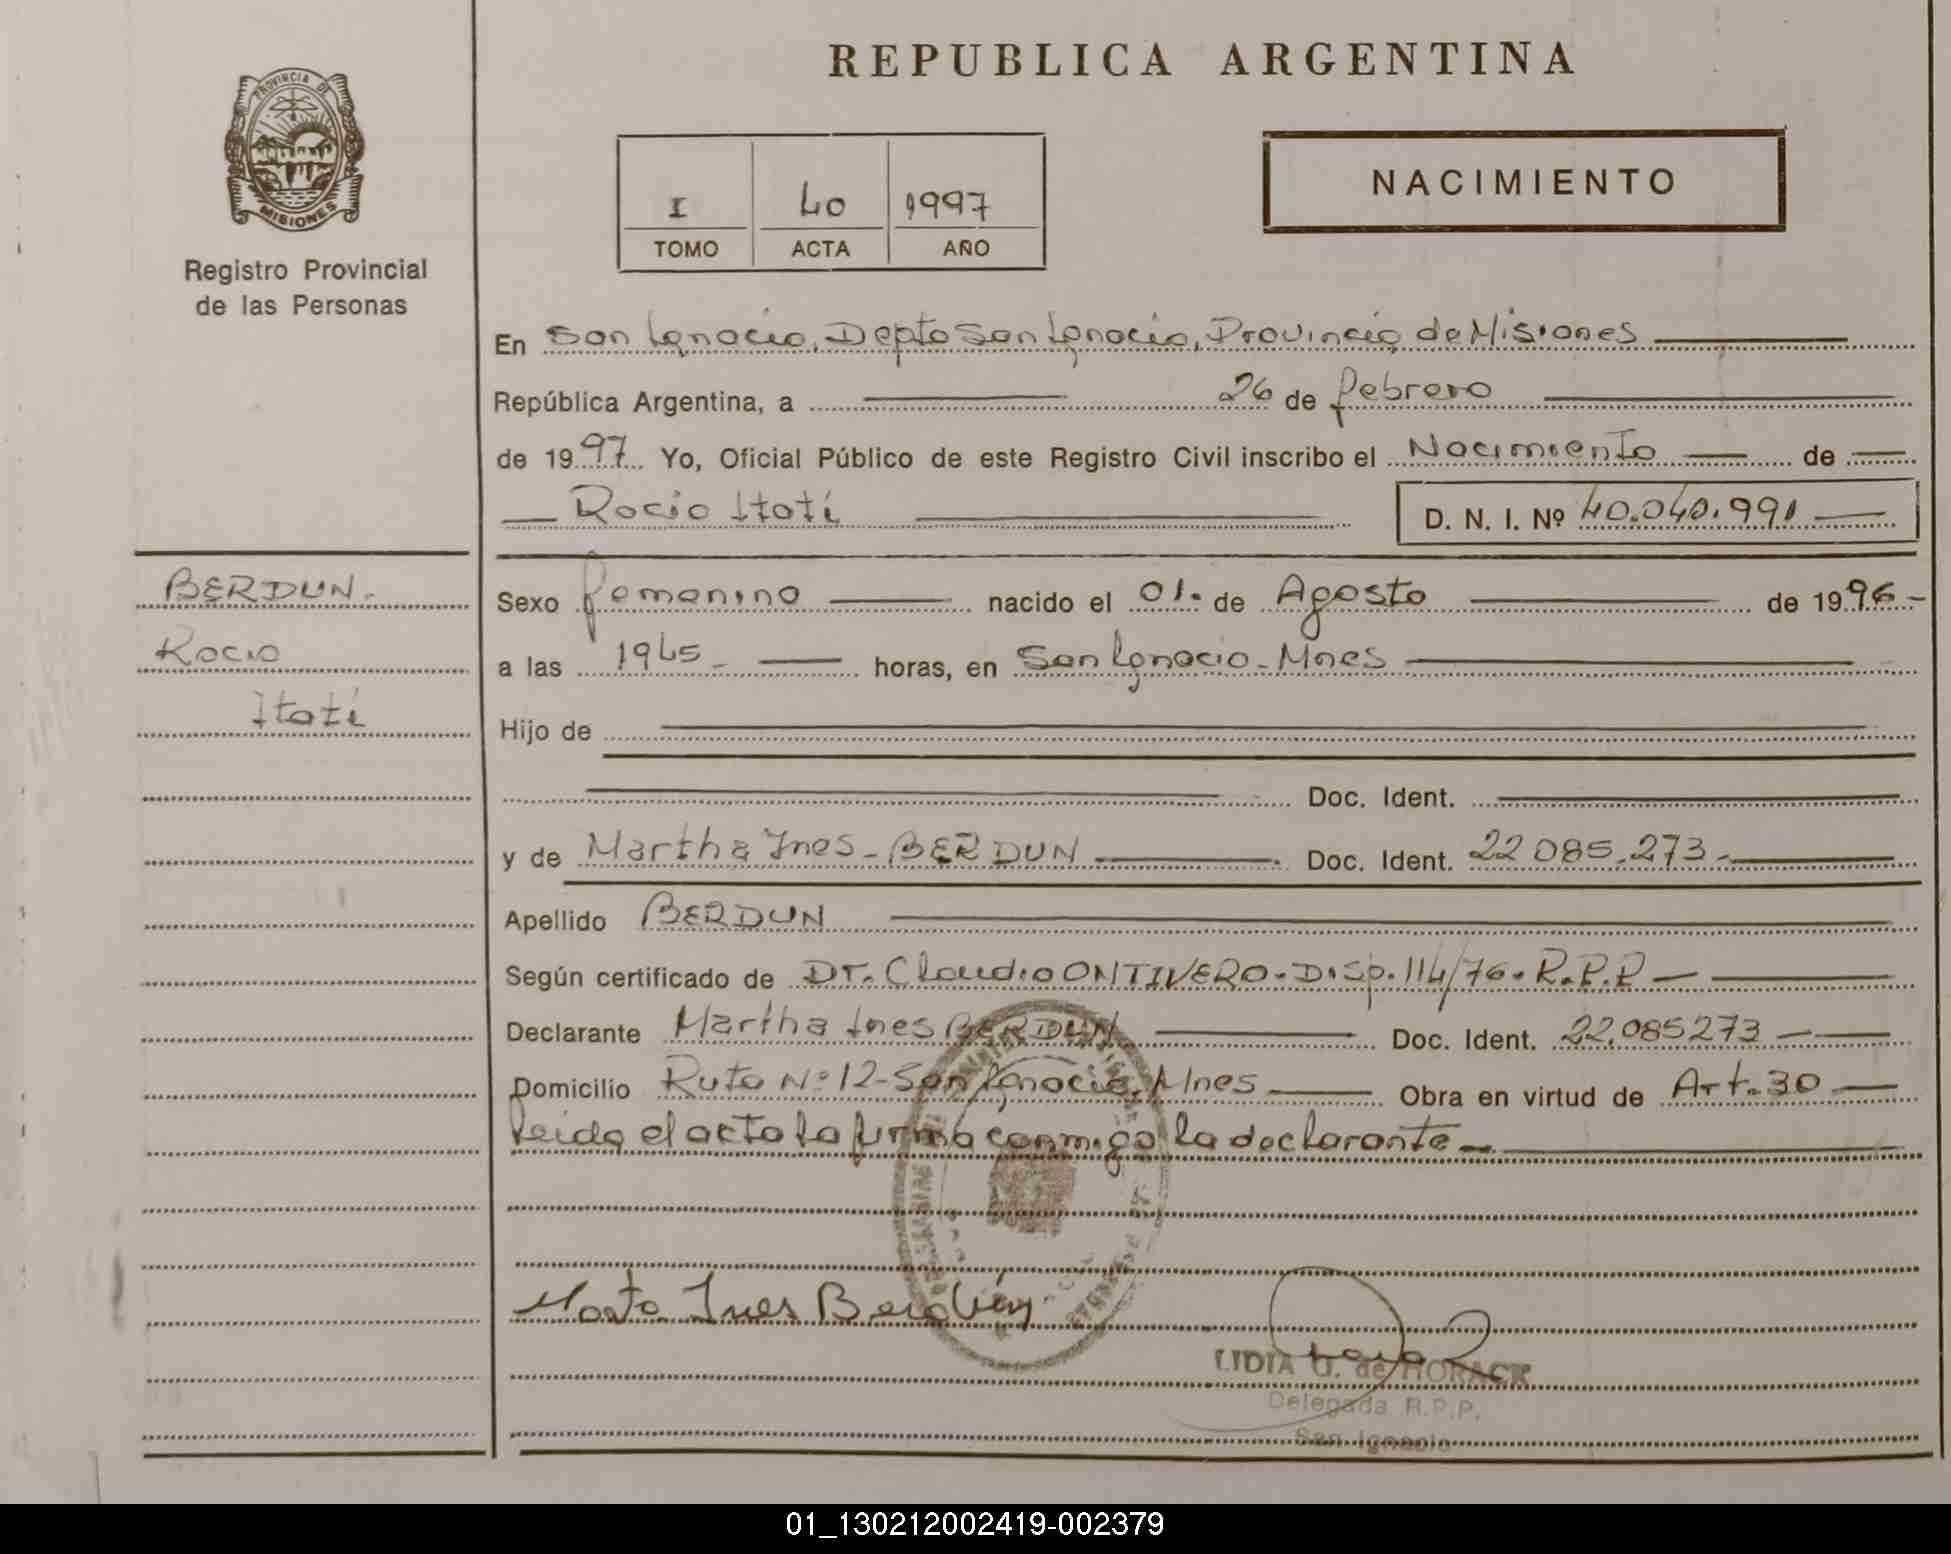 REPUBLICA ARGENTINA
PROVINCIA DE
MISIONES
Registro Provincial
de las Personas
I 40 1997
TOMO ACTA AÑO
NACIMIENTO
En San Ignacio, Depto San Ignacio, Provincia de Misiones
República Argentina, a 26 de febrero
de 1997 Yo, Oficial Público de este Registro Civil inscribo el Nacimiento de
Rocio Itatí D. N. I. Nº 40.040.991
BERDUN.
Rocio
Itatí
Sexo femenino nacido el 01. de Agosto de 1996-
a las 1945- horas, en San Ignacio-Mnes
Hijo de
Doc. Ident.
y de Martha Ines-BERDUN Doc. Ident. 22 085.273-
Apellido BERDUN
Según certificado de DT. Claudio ONTIVERO-Disp.114/76-R.P.P
Declarante Martha Ines BERDUN Doc. Ident. 22.085273
Domicilio Ruta Nº12-San Ignacio, Mnes Obra en virtud de Art.30
leida el acta la firma conmigo la declarante
Marta Ines Berdún
LIDIA G. de HORACK
Delegada R.P.P.
San Ignacio
01_130212002419-002379